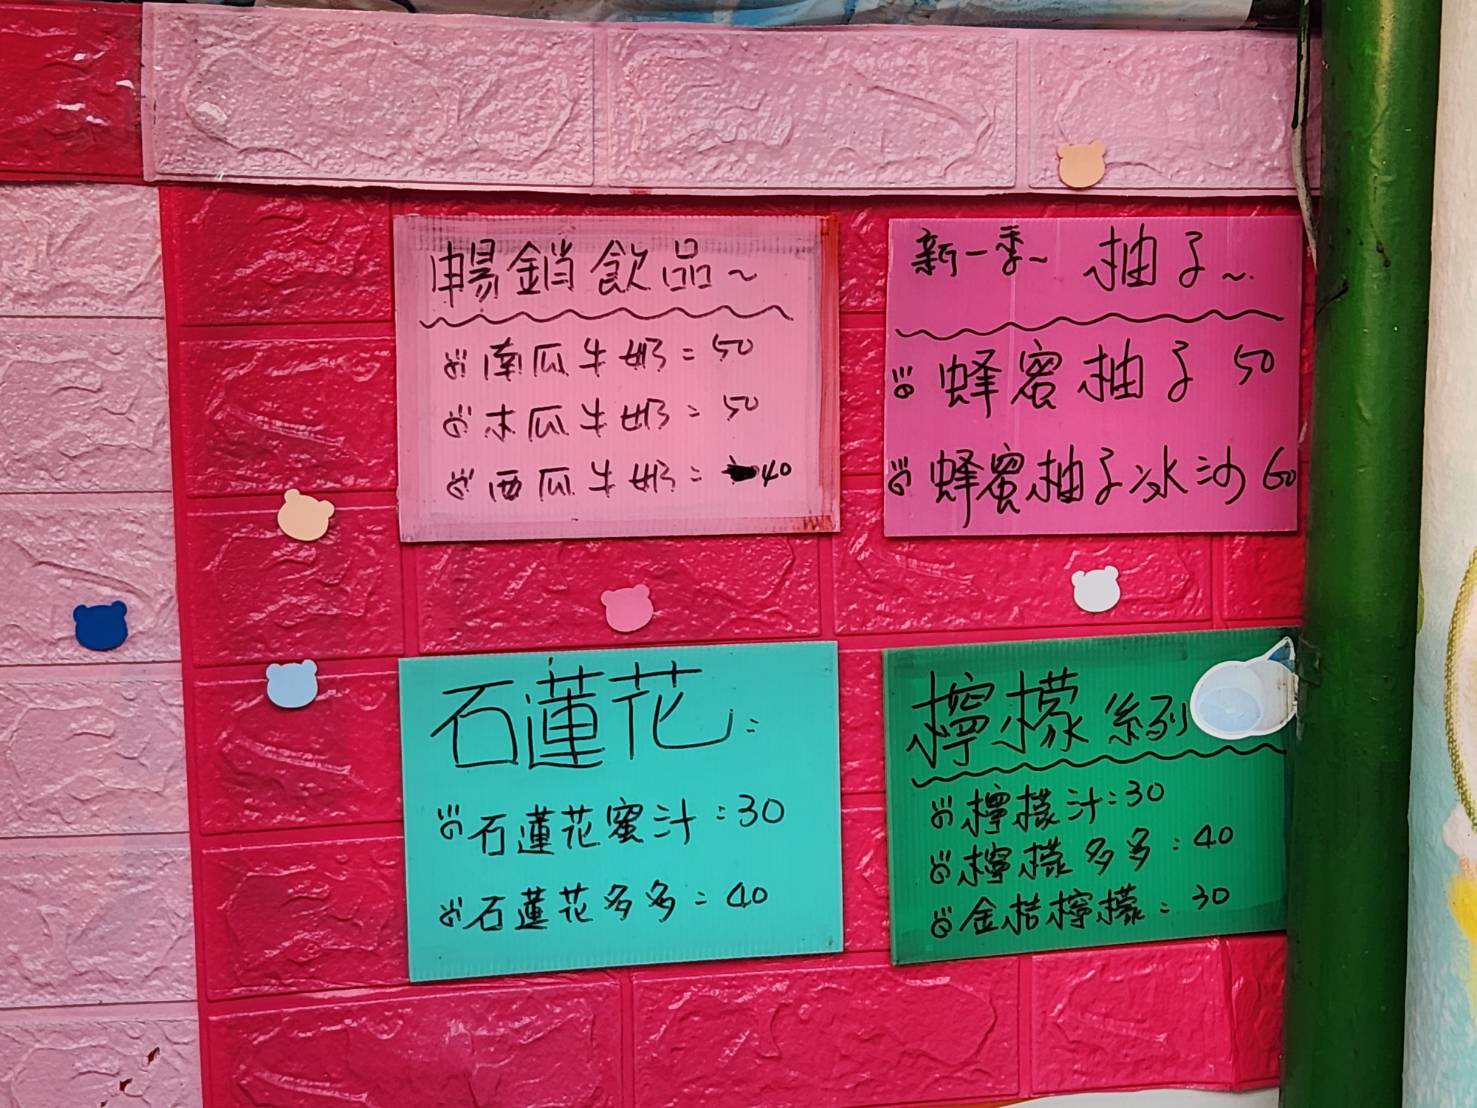 暢銷飲品~
南瓜牛奶=50
木瓜牛奶=50
西瓜牛奶=40
新一季~ 柚子~
蜂蜜柚子 50
蜂蜜柚子冰沙 60
石蓮花:
石蓮花蜜汁:30
石蓮花多多=40
檸檬系列
檸檬汁:30
檸檬多多:40
金桔檸檬=30